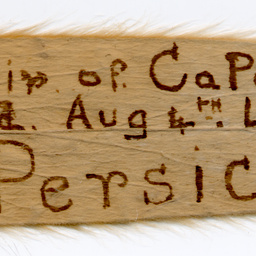 ip. of. CaPe
Aug 4TH. L
Persic